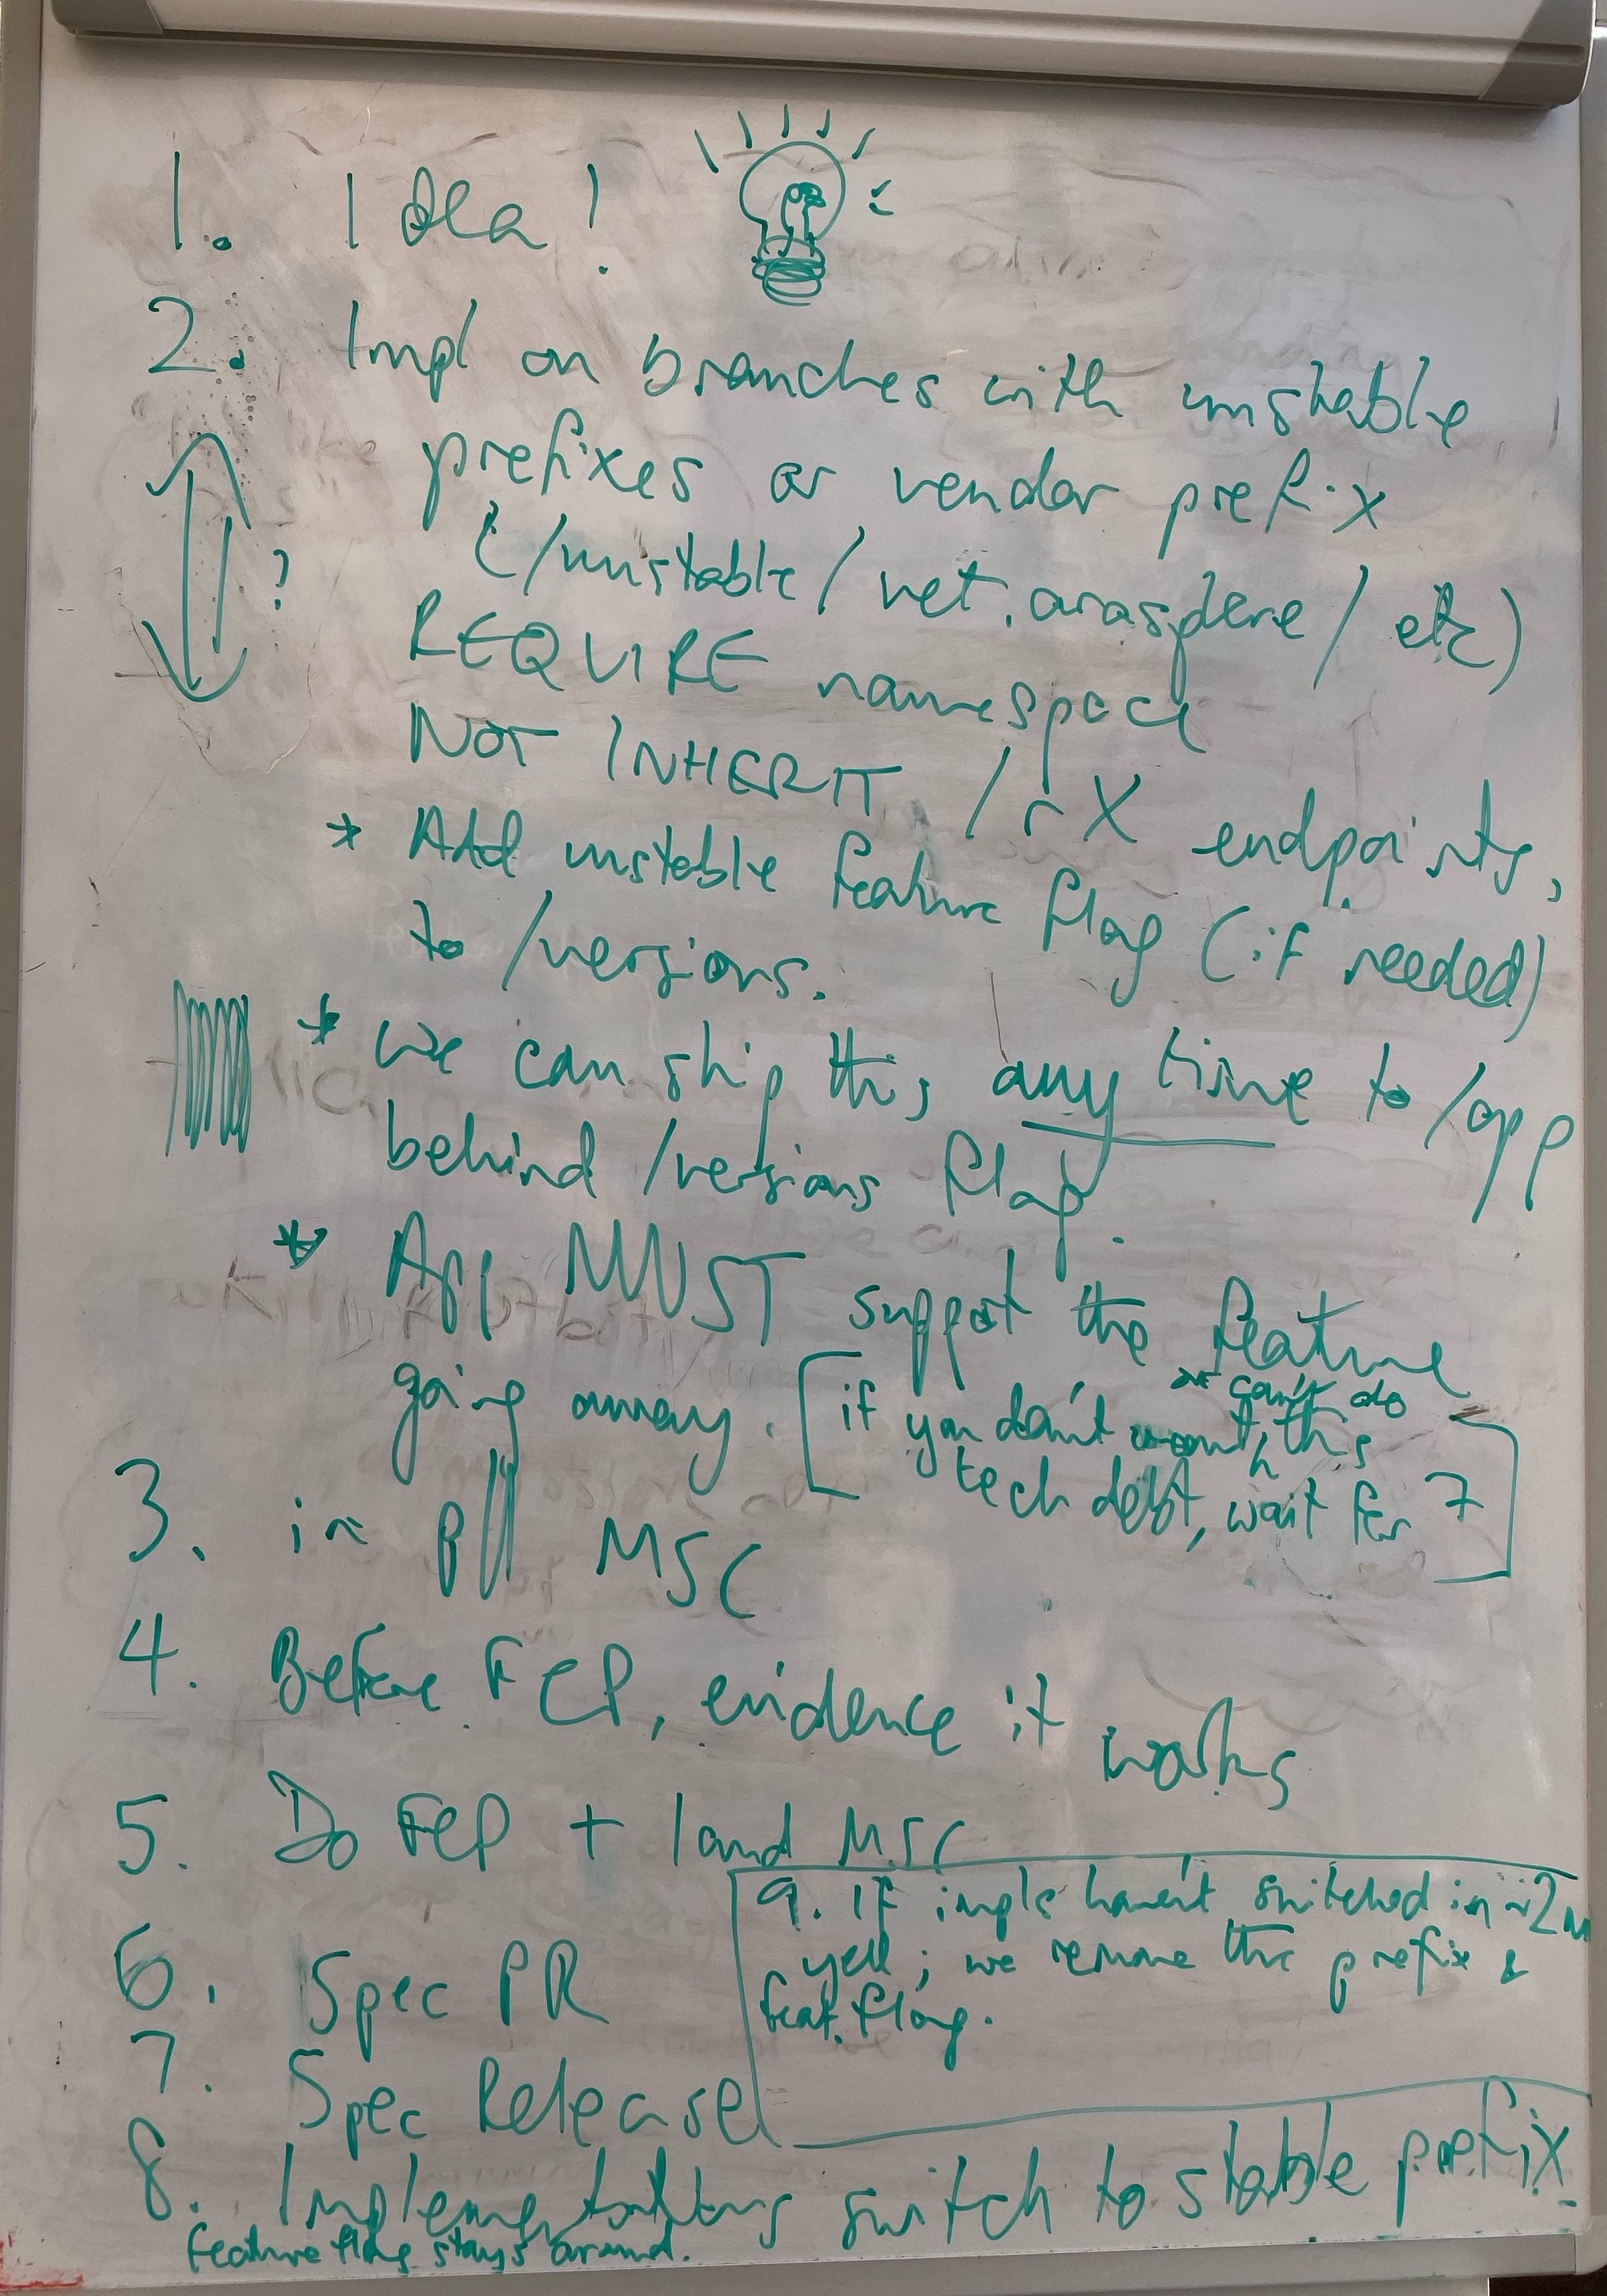 1. Idea!
2. Impl on branches with unstable
prefixes or vendor prefix
(/unstable/net.arasphere/etc)
?
REQUIRE namespace
NOT INHERIT /rX endpoints,
* Add unstable feature flag (if needed)
to /versions.
* We can ship this any time to /app
behind /versions flag.
* App MUST support the feature
going away. [if you don't want this
or can't do
tech debt, wait for 7]
3. in MSC
4. Before FCP, evidence it works
5. Do FCP + land MSC
6. Spec PR
7. Spec Release
8. Implementations switch to stable prefix.
feature flag stays around.
9. If impls haven't switched in ~2m
yell; we remove the prefix &
feat. flag.